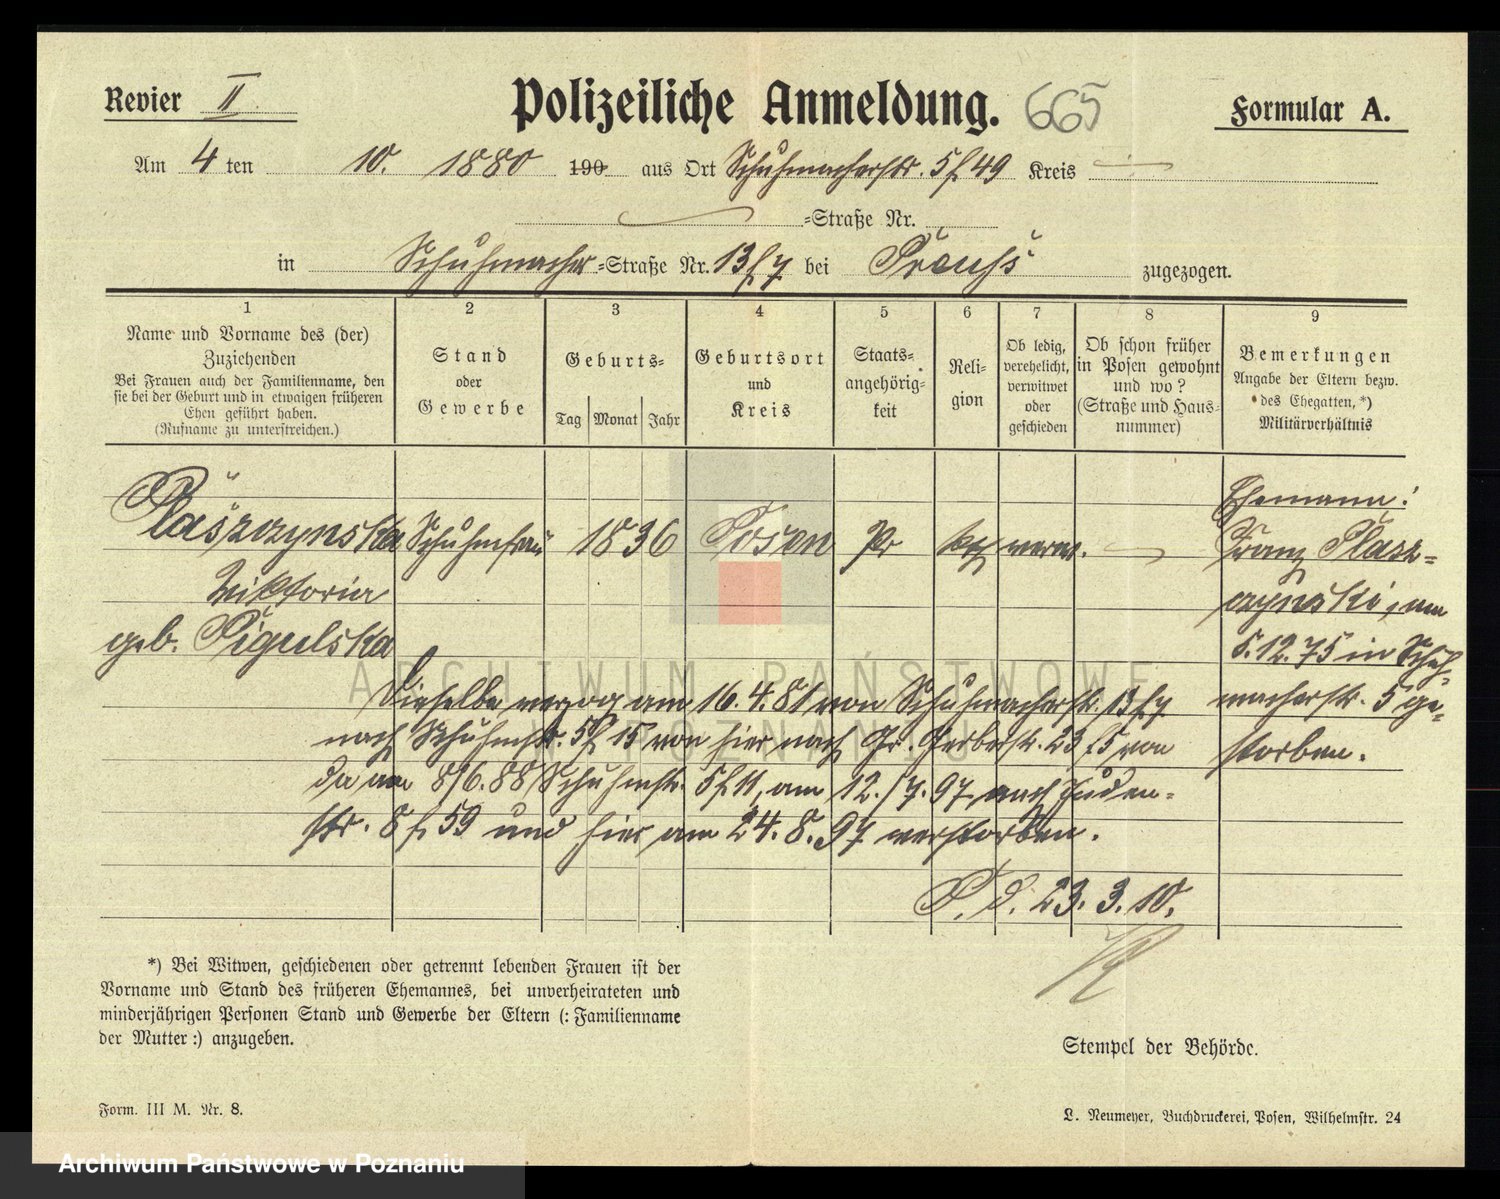 Revier II
Polizeiliche Anmeldung. 665
Formular A.
Am 4 ten 10. 1880 190 aus Ort Schuhmacherstr. 5f49 Kreis
=Straße Nr.
in Schuhmacher =Straße Nr. 13f7 bei Preuss zugezogen.
1
Name und Vorname des (der)
Zuziehenden
Bei Frauen auch der Familienname, den
sie bei der Geburt und in etwaigen früheren
Ehen geführt haben.
(Rufname zu unterstreichen.)
2
Stand
oder
Gewerbe
3
Geburts=
Tag Monat Jahr
4
Geburtsort
und
Kreis
5
Staats=
angehörig=
keit
6
Reli=
gion
7
Ob ledig,
verehelicht,
verwitwet
oder
geschieden
8
Ob schon früher
in Posen gewohnt
und wo?
(Straße und Haus=
nummer)
9
Bemerkungen
Angabe der Eltern bezw.
des Ehegatten, *)
Militärverhältnis
Płaszczynska
Wiktoria
geb. Pigulska
Schuhmfrau
1836
Posen
Pr
kat
verw.
Ehemann:
Franz Płasz=
czynski, am
5.12.75 in Schuh=
macherstr. 5 ge=
storben.
Dieselbe verzog am 16.4.81 von Schuhmacherstr. 13f7
nach Schuhmstr. 5f15 von hier nach Gr. Gerberstr. 23f5 von
da am 8/6.88 Schuhmstr. 5f11, am 12./7.97 nach Juden=
str. 8f59 und hier am 24.8.97 verstorben.
P. d. 23.3.10.
*) Bei Witwen, geschiedenen oder getrennt lebenden Frauen ist der
Vorname und Stand des früheren Ehemannes, bei unverheirateten und
minderjährigen Personen Stand und Gewerbe der Eltern (: Familienname
der Mutter :) anzugeben.
Stempel der Behörde.
Form. III M. Nr. 8.
L. Neumeyer, Buchdruckerei, Posen, Wilhelmstr. 24
ARCHIWUM PAŃSTWOWE
W POZNANIU
Archiwum Państwowe w Poznaniu